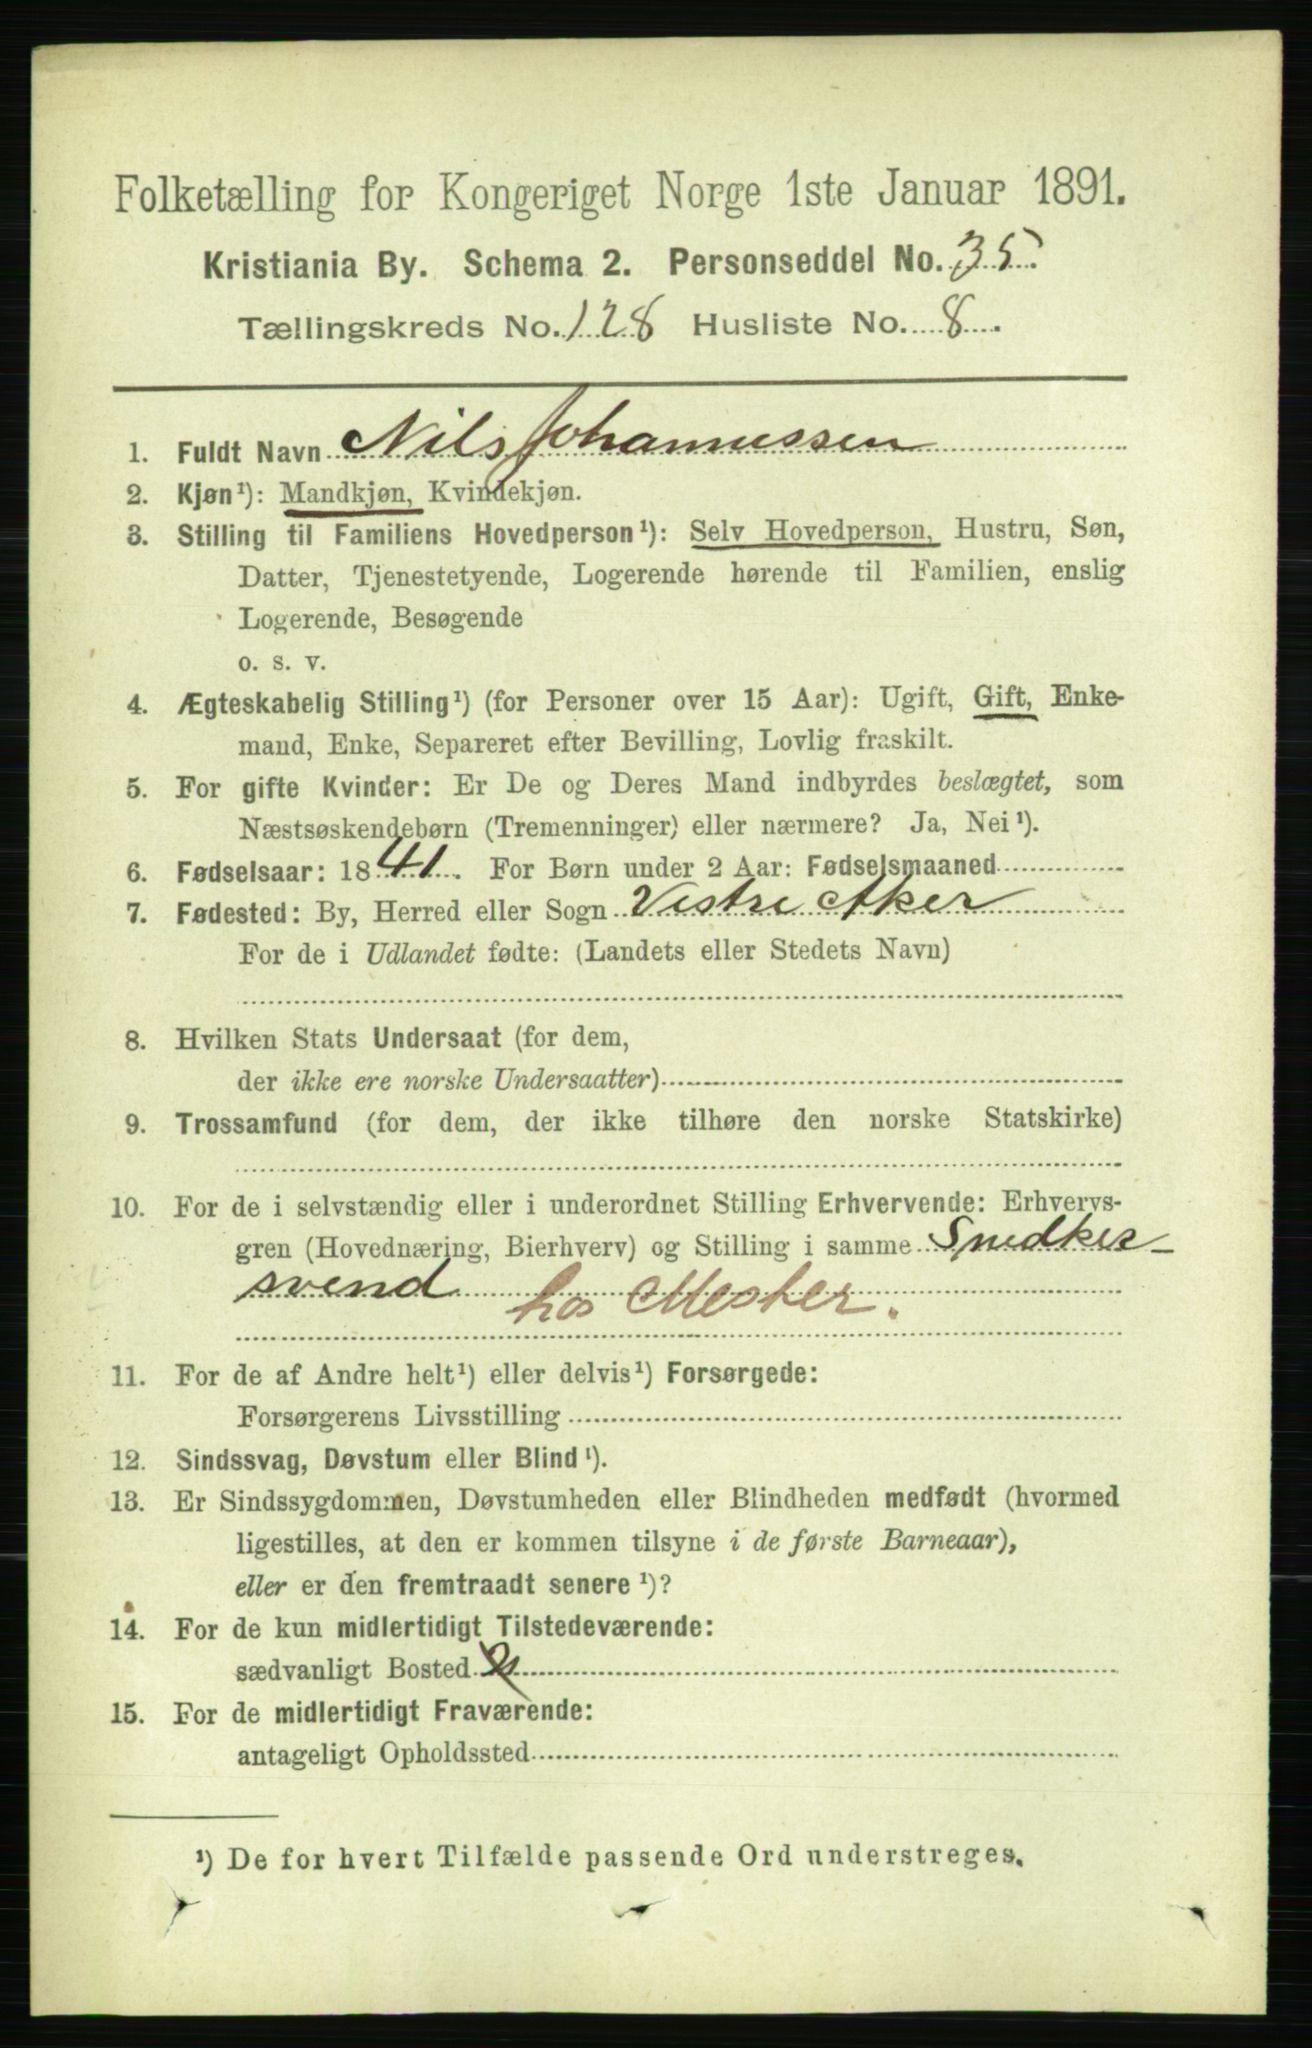 Folketælling for Kongeriget Norge 1ste Januar 1891.
Kristiania By. Schema 2. Personseddel No. 35.
Tællingskreds No. 128 Husliste No. 8.
1. Fuldt Navn Nils Johannessen
2. Kjøn¹): Mandkjøn, Kvindekjøn.
3. Stilling til Familiens Hovedperson¹): Selv Hovedperson, Hustru, Søn,
Datter, Tjenestetyende, Logerende hørende til Familien, enslig
Logerende, Besøgende
o. s. v.
4. Ægteskabelig Stilling¹) (for Personer over 15 Aar): Ugift, Gift, Enke-
mand, Enke, Separeret efter Bevilling, Lovlig fraskilt.
5. For gifte Kvinder: Er De og Deres Mand indbyrdes beslægtet, som
Næstsøskendebørn (Tremenninger) eller nærmere? Ja, Nei¹).
6. Fødselsaar: 1841. For Børn under 2 Aar: Fødselsmaaned
7. Fødested: By, Herred eller Sogn Vestre Aker
For de i Udlandet fødte: (Landets eller Stedets Navn)
8. Hvilken Stats Undersaat (for dem,
der ikke ere norske Undersaatter)
9. Trossamfund (for dem, der ikke tilhøre den norske Statskirke)
10. For de i selvstændig eller i underordnet Stilling Erhvervende: Erhvervs-
gren (Hovednæring, Bierhverv) og Stilling i samme Snedker-
svend hos Mester.
11. For de af Andre helt¹) eller delvis¹) Forsørgede:
Forsørgerens Livsstilling
12. Sindssvag, Døvstum eller Blind¹).
13. Er Sindssygdommen, Døvstumheden eller Blindheden medfødt (hvormed
ligestilles, at den er kommen tilsyne i de første Barneaar),
eller er den fremtraadt senere¹)?
14. For de kun midlertidigt Tilstedeværende:
sædvanligt Bosted
15. For de midlertidigt Fraværende:
antageligt Opholdssted
¹) De for hvert Tilfælde passende Ord understreges.